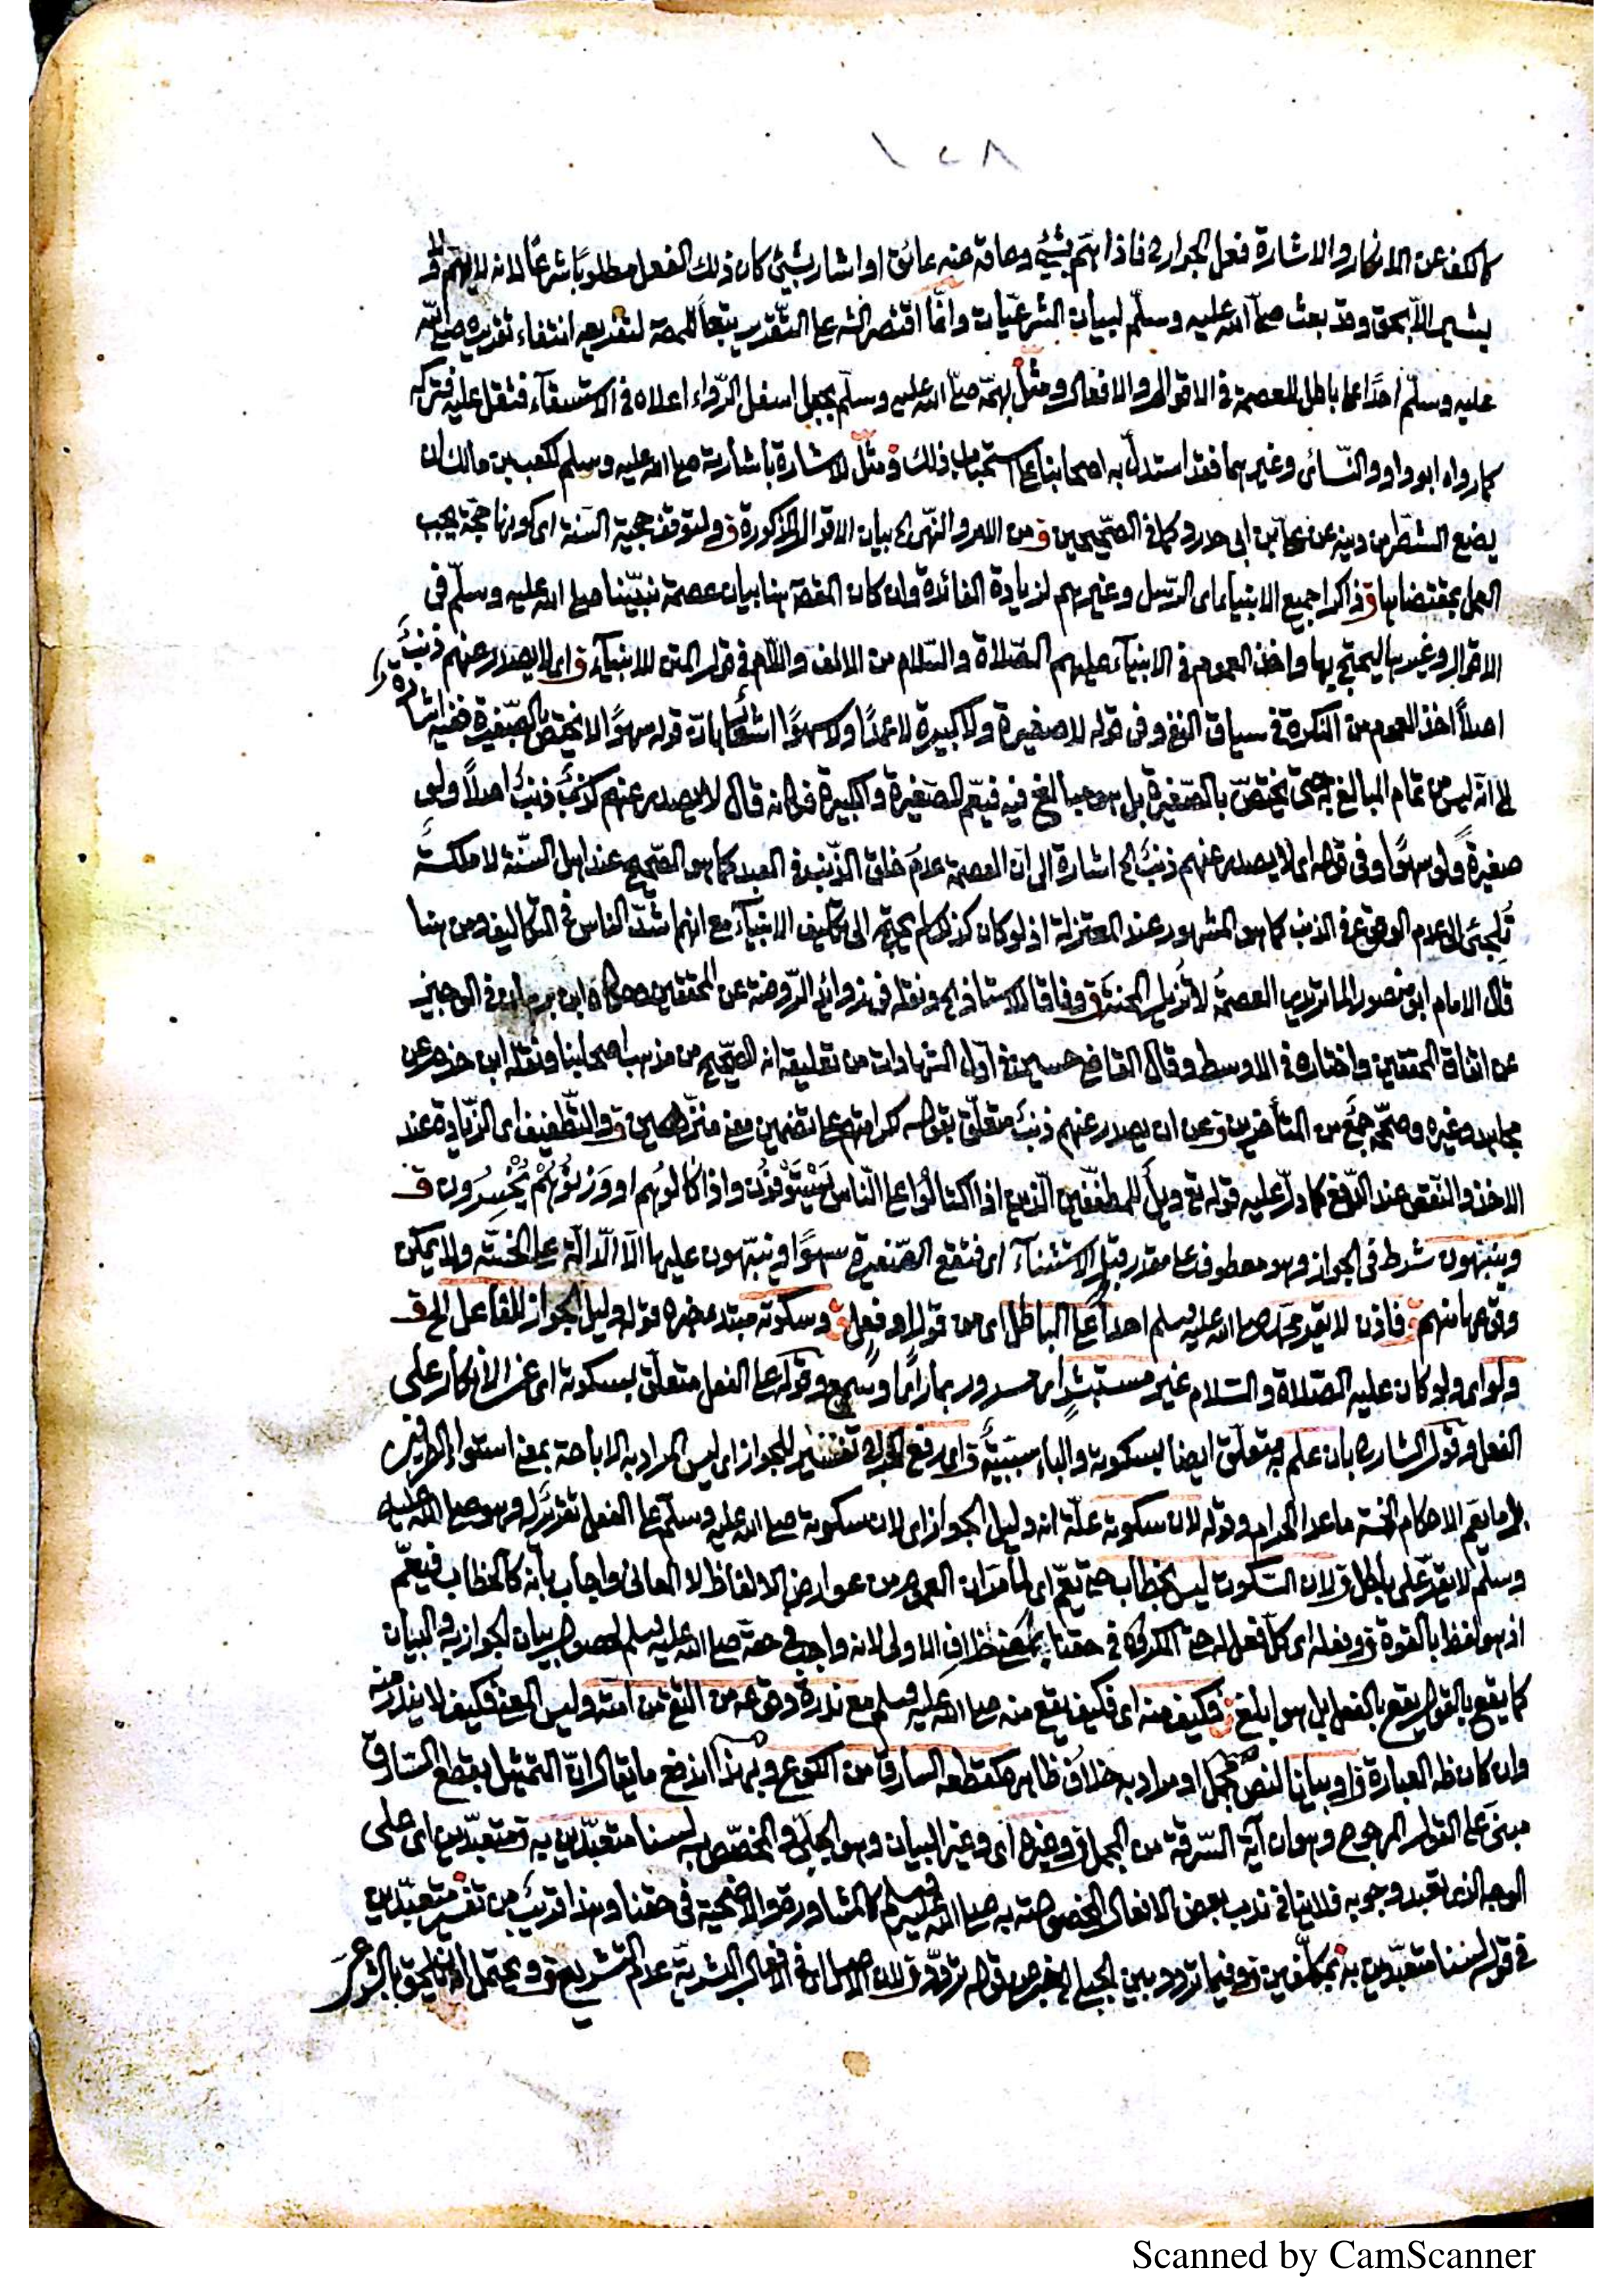 ١٢٨
كالكف عن الانكار والاشارة فعل الجوارح فاذا هَمّ بشيئ وعاقه عنه عائق او اشار بشيئ كان ذلك الفعل مطلوبًا شرعًا لانه لا يهمّ ولا
يشير الّا بحق وقد بعث صلّى الله عليه وسلّم لبيان الشرعيّات وانّما اقتصر الشه على التّقدير تبعاً للمصه لتفريعه انتفاء تقديره صلى الله
عليه وسلّم احدًا على باطل للعصمة في الاقوال والافعال ومثّل بهمّه صلى الله عليه وسلّم بجعل اسفل الرّداء اعلاه في الاستسقآء فثقل عليه فتركه
كما رواه ابو داود والنّسائى وغيرهما فقد استدلّ به اصحابنا على استحباب ذلك ومثّل الاشارة باشارته صلى الله عليه وسلم لكعب بن مالك ان
يضع الشطر من دينه عن ابن ابى حدرد كما في الصّحيحين ق من الامر والنّهى الخ بيان الاقوال المذكورة ق ولتوقف حجية السّنة اى كونها حجّة يجب
العمل بمقتضاها ق ذاكرا جميع الانبياء اى الرّسل وغيرهم لزيادة الفائدة وان كان المقصه هنا بيان عصمة نبيّنا صلى الله عليه وسلّم في
الاقوال وغيرها ليحتجّ بها واخذ العموم في الانبيآء عليهم الصّلاة والسّلام من الالف واللّام في قول المتن الانبيآء ق اى لا يصدر عنهم ذنبٌ
اصلاً اخذ العموم من النّكرة في سياق النفى وفى قوله لا صغيرة ولا كبيرة لا عمدًا ولا سهوًا اشعار بان قوله سهوًا لا يختص بالصّغيرة ففيه اشارة
الى انّه ليس من تمام المبالغ به حتى يختصّ بالصّغيرة بل هو مبالغ فيه فيعم الصّغيرة والكبيرة فكانه قال لا يصدر عنهم ذنبٌ اصلاً ولو
صغيرةً ولو سهوًا وفى قوله اى لا يصدر عنهم ذنبٌ الخ اشارة الى انّ العصمة عدمَ خلق الذّنب في العبد كما هو الصّحيح عند اهل السّنّة لا ملكةٌ
تُلجئ الى عدم الوقوع في الذنب كما هو المشهور عند المعتزلة اذ لو كان كذلك لم يحتج الى تكليف الانبيآء مع انهم اشدّ الناس في التّكاليف ومن هنا
قال الامام ابو منصور الماتريدى العصمةُ لا تُزيل المحنة ق وفاقا للاستاذ الخ ونقله في زوائد الرّوضة عن المحققين وحكاه ابن برهان في الوجيز
عن اتفاق المحققين واختاره في الاوسط وقال القاضى حسين في اوّل الشهادات من تعليقه انه الصّحيح من مذهب اصحابنا ونقله ابن حزم عن
مجاهد وغيره وصحّحه جمع من المتأخرين ق عن ان يصدر عنهم ذنبٌ متعلّق بقوله كرامتهم على تضمين معنى منزّهين ق والتّطفيف اى الزّيادة عند
الاخذ والنّقص عند الدّفع كما دلّ عليه قوله تع ويلٌ للمطفّفين الّذين اذا اكتالوا على النّاس يَسْتَوْفُونَ واذا كالُوهم او وَزَنُوْهُمْ يُخْسِرُون ق
وينبّهون شرط في الجواز وهو معطوف على مقدر قبل الاستثنآء اى فتقع الصّغيرة سهوًا وينبّهون عليها الّا الّدالّة على الخسّة ولا يمكن
وقوعها منهم ق فاذن لا يقرّ محمد صلى الله عليه وسلم احداً على الباطل اى من قول او فعل ق وسكوته مبتدء خبره قوله دليل الجواز للفاعل الخ ق
ولو اى ولو كان عليه الصّلاة والسّلام غير مستبشرٍ اى مسرور بما راى او سمع وقوله على الفعل متعلّق بسكوته اى عن الانكار على
الفعل وقول الشارح بان علم به متعلّق ايضا بسكوته والباء سببيّةٌ ق اى رفع الحرج تفسير للجواز اى ليس المراد به الاباحة بمعنى استواء الطرفين
بل ما يعم الاحكام الخمسة ما عدا الحرام وقوله لان سكوته علّة انه دليل الجواز اى لان سكوته صلى الله عليه وسلّم على الفعل تقريرٌ له وهو صلى الله عليه
وسلّم لا يقرّ على باطل ق لان السّكوت ليس بخطاب حتى يعمّ اى لما مرّ ان العموم من عوارض الالفاظ لا المعانى واجاب بانّه كالخطاب فيعمّ
اذ هو لفظ بالقوة ق وفعله اى كلّ فعل له حتى المكروه في حقنا بمعنى خلاف الاولى لانه واجب في حقه صلى الله عليه وسلم لحصول بيان الجواز به والبيان
كما يقع بالقول يقع بالفعل بل هو ابلغ ق فكيف منه اى فكيف يقع منه صلى الله عليه وسلم مع ندرة وقوعه من التقى من امّته وليس المعنى فكيف لا يندر منه
وان كان ظه العبارة ق او بيانا لنص مجمل او مراد به خلاف ظاهره كقطعه السارق من الكوع وبهذا اندفع ما يقال انّ التمثيل بقطع السّارق
مبنى على القول المرجوح وهو ان آية السّرقة من المجمل ق وغيره اى وغير البيان وهو الجبلّى والمخصّص به لسنا متعبّدين به ق متعبّدين اى على
الوجه الذى تعبد وجوبه فلا ينافي ندب بعض الافعال المخصوصة به صلى الله عليه وسلم كالمشاورة والاضحية في حقنا وهذا قريب من تفسير متعبّدين
في قوله لسنا متعبّدين به بمكلّفين ق وفيما تردد بين الجبلى والشرعى قوله تردّد ق لان الاصل في الافعال البشريّة عدم التّشريع ق ويحتمل ان يلحق بالشرعى